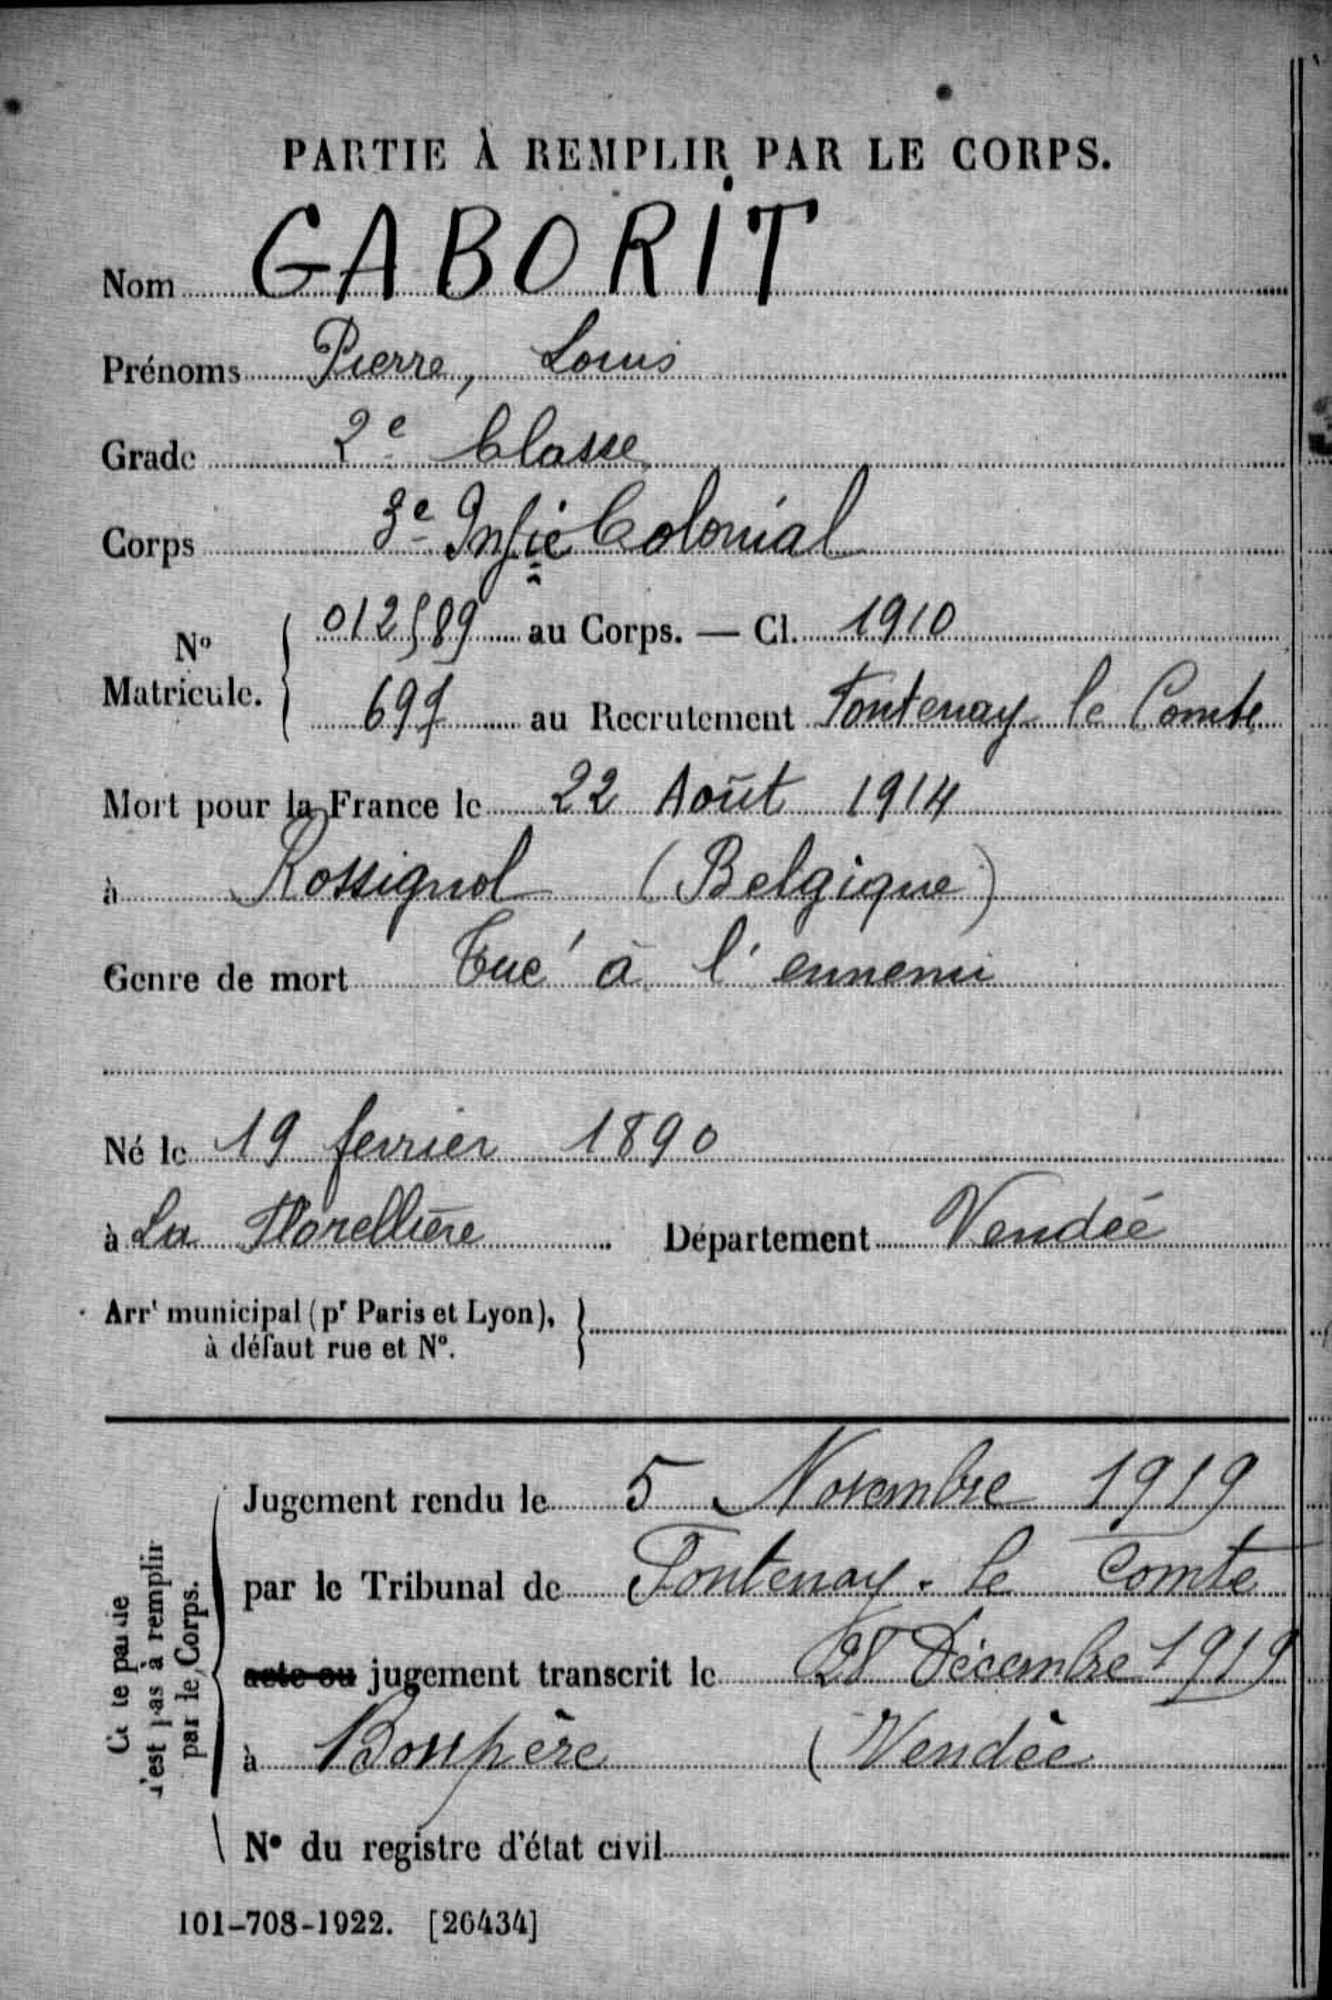 PARTIE À REMPLIR PAR LE CORPS.
Nom GABORIT
Prénoms Pierre, Louis
Grade 2e Classe
Corps 3e Infie Colonial
No Matricule. 012589 au Corps. — Cl. 1910
697 au Recrutement Fontenay le Comte
Mort pour la France le 22 Août 1914
à Rossignol (Belgique)
Genre de mort Tué à l'ennemi
Né le 19 fevrier 1890
à La Florellière Département Vendée
Arrt municipal (pr Paris et Lyon),
à défaut rue et No.
Cette partie n'est pas à remplir par le Corps.
Jugement rendu le 5 Novembre 1919
par le Tribunal de Fontenay-le Comte
acte ou jugement transcrit le 28 Décembre 1919
à Boupère (Vendée
No du registre d'état civil
101-708-1922. [26434]